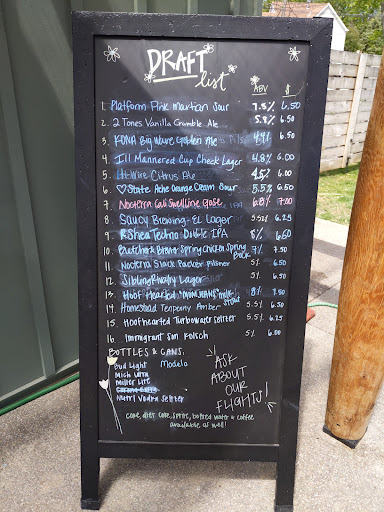 DRAFT
list
ABV $
1. Platform Pink Martian Sour 7.5% 6.50
2. 2 Tones Vanilla Crumble Ale 5.9% 6.50
3. KONA Big Wave Golden Ale 4.4% 6.50
4. Ill Mannered Cup Check Lager 4.8% 6.00
5. Hi-Wire Citrus Ale 4.5% 6.00
6. ♡ State Ache Orange Cream Sour 5.5% 6.50
7. Nocterra Gose 6.8% 7.00
8. Saucy Brewing-El Lager 5.5% 6.25
9. RShea Techno Double IPA 8% 6.50
10. Butcher & Brew Spring Chicken Spring Bock 7% 7.50
11. Nocterra Slack Packer Pilsner 5% 6.50
12. Sibling Rivalry Lager 5% 6.50
13. Hoof Hearted milk stout 8% 7.50
14. Homestead Tenpenny Amber 5.5% 6.50
15. Hoof hearted Turbowater Seltzer 5.5% 6.25
16. Immigrant Son Kolsch 5% 6.00
BOTTLES & CANS:
Bud Light Modelo
Mich Ultra
Miller Lite
Nutrl Vodka Seltzer
ASK
ABOUT
OUR
FLIGHTS!
coke, diet coke, sprite, bottled water & coffee
available as well!